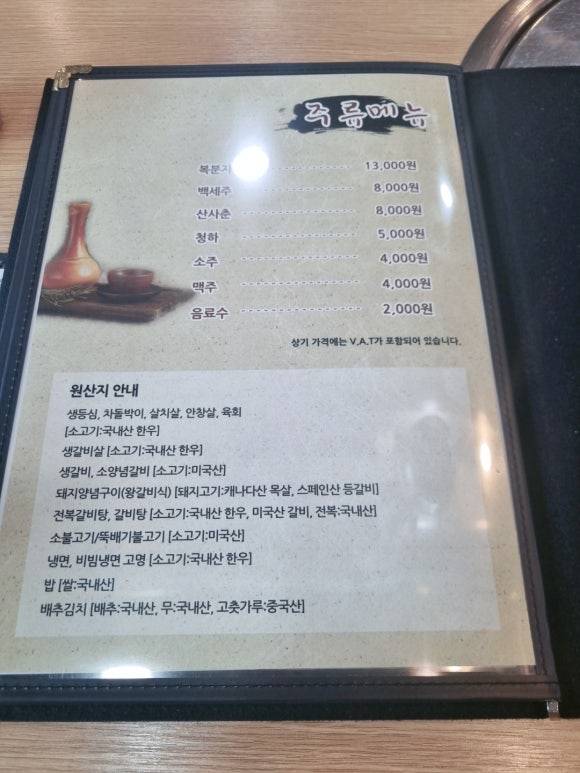 주류메뉴
복분자 13,000원
백세주 8,000원
산사춘 8,000원
청하 5,000원
소주 4,000원
맥주 4,000원
음료수 2,000원
상기 가격에는 V.A.T가 포함되어 있습니다.
원산지 안내
생등심, 차돌박이, 살치살, 안창살, 육회
[소고기:국내산 한우]
생갈비살 [소고기:국내산 한우]
생갈비, 소양념갈비 [소고기:미국산]
돼지양념구이(왕갈비식) [돼지고기:캐나다산 목살, 스페인산 등갈비]
전복갈비탕, 갈비탕 [소고기:국내산 한우, 미국산 갈비, 전복:국내산]
소불고기/뚝배기불고기 [소고기:미국산]
냉면, 비빔냉면 고명 [소고기:국내산 한우]
밥 [쌀:국내산]
배추김치 [배추:국내산, 무:국내산, 고춧가루:중국산]